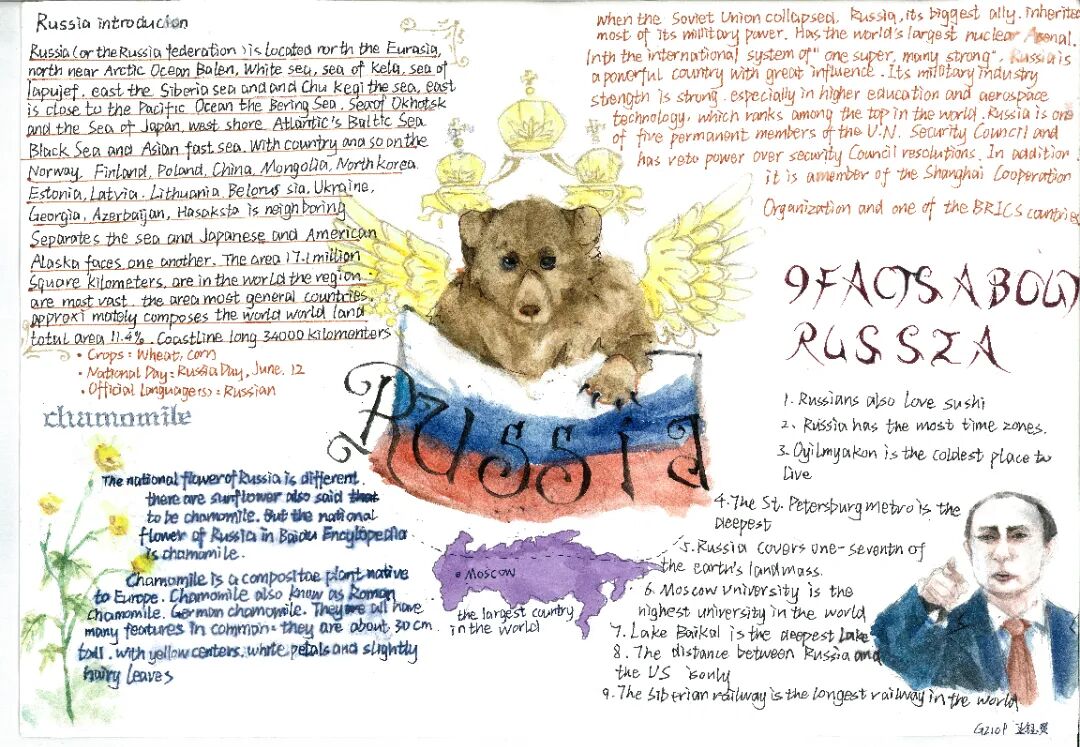 Russia introducion
Russia (or the Russia federation) is located north the Eurasia,
north near Arctic Ocean Balen, White sea, sea of kela, sea of
lapujef. east the Siberia sea and and Chu kegi the sea, east
is close to the Pacific Ocean the Bering Sea. Sea of Okhotsk
and the Sea of Japan, west shore Atlantic's Baltic Sea
Black Sea and Asian fast sea. With country and so on the
Norway. Finland, Poland, China, Mongolia, North korea.
Estonia, Latvia. Lithuania Belorus sia, Ukraine,
Georgia, Azerbaijan, Hasaksta is neighboring
Separates the sea and Japanese and American
Alaska faces one another. The area 17.1 million
square kilometers, are in the world the region
are most vast. the area most general countries,
approxi mately composes the world world land
totul area 11.4%. Coastline long 34000 kilomenters
• Crops: Wheat, corn
• National Day: Russia Day, June. 12
• Official language(s): Russian
chamomile
The national flower of Russia is different.
there are sunflower also said that
to be chamomile. But the national
flower of Russia in Baidu Encylopedia
is chamomile.
Chamomile is a compositae plant native
to Europe. Chamomile also know as Roman
Chamomile. German chamomile. They are all have
many features in common: they are about 30 cm
tall. with yellow centers, white petals and slightly
hairy leaves
Russia
Moscow
the largest country
in the world
when the Soviet Union collapsed, Russia, its biggest ally. inherited
most of its military power. Has the world's largest nuclear Arsenal.
Inth the international system of "one super, many strong". Russia is
a powerful country with great influence. Its military industry
strength is strong. especially in higher education and aerospace
technology, which ranks among the top in the world. Russia is one
of five permanent members of the U.N. Security Council and
has veto power over security Council resolutions. In addition
it is a member of the Shanghai Cooperation
Organization and one of the BRICS countries
9 FACTS ABOUT
RUSSIA
1. Russians also love sushi
2. Russia has the most time zones.
3. Oyilmyakon is the coldest place to
live
4. The St. Petersburg metro is the
deepest
5. Russia covers one-seventh of
the earth's landmass.
6. Moscow University is the
highest university in the world
7. Lake Baikal is the deepest Lake
8. The distance between Russia and
the US is only
9. The Siberian railway is the longest railway in the world
G210P